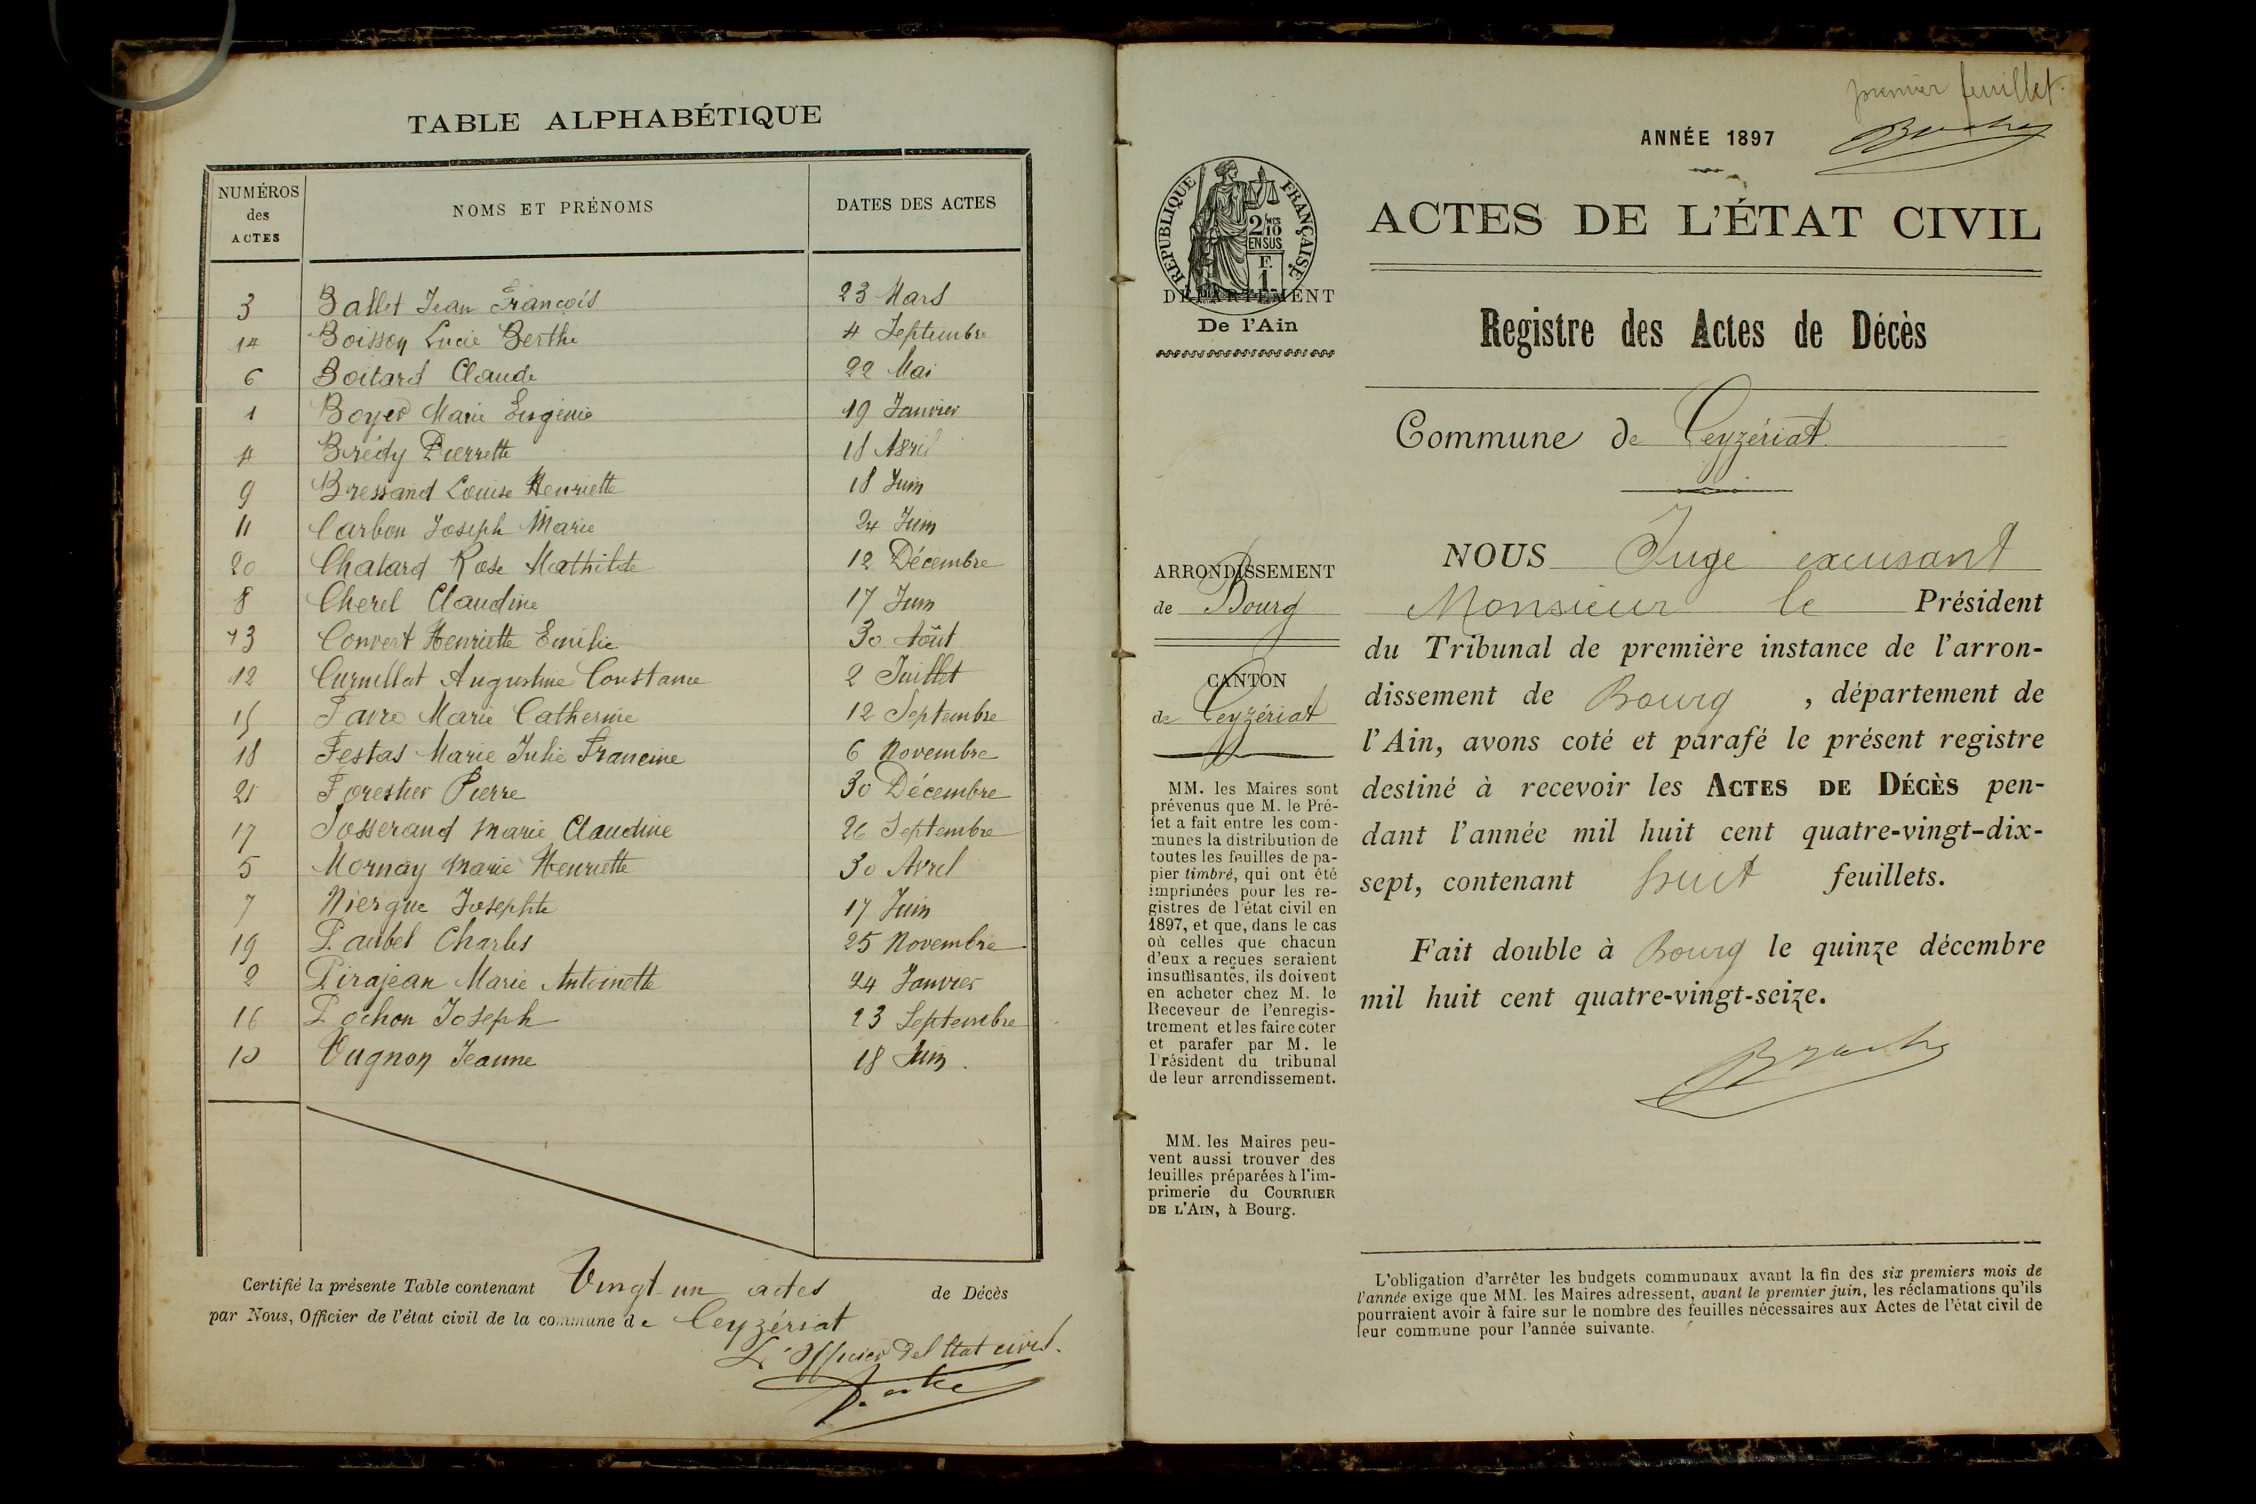 TABLE ALPHABÉTIQUE
NUMÉROS des ACTES NOMS ET PRÉNOMS DATES DES ACTES
3 Ballet Jean François 23 Mars
14 Boisson Lucie Berthe 4 Septembre
6 Boitard Claude 22 Mai
1 Boyer Marie Eugénie 19 Janvier
4 Brédy Pierrette 18 Avril
9 Bressand Louise Henriette 18 Juin
11 Carbon Joseph Marie 24 Juin
20 Chatard Rose Mathilde 12 Décembre
8 Cherel Claudine 17 Juin
13 Convert Henriette Emilie 30 Août
12 Curnillat Augustine Constance 2 Juillet
15 Favre Marie Catherine 12 Septembre
18 Festas Marie Julie Francine 6 Novembre
21 Forestier Pierre 30 Décembre
17 Josserand Marie Claudine 26 Septembre
5 Mornay Marie Henriette 30 Avril
7 Niergue Josephte 17 Juin
19 Paubel Charles 25 Novembre
2 Pirajean Marie Antoinette 24 Janvier
16 Pochon Joseph 23 Septembre
10 Vugnon Jeanne 18 Juin
Certifié la présente Table contenant Vingt-un actes de Décès
par Nous, Officier de l'état civil de la commune de Ceyzériat
L'Officier de l'Etat civil.
premier feuillet.
ANNÉE 1897
RÉPUBLIQUE FRANÇAISE
2/10
EN SUS
F.
1
DÉPARTEMENT
De l'Ain
ACTES DE L'ÉTAT CIVIL
Registre des Actes de Décès
Commune de Ceyzériat
ARRONDISSEMENT
de Bourg
CANTON
de Ceyzériat
MM. les Maires sont
prévenus que M. le Pré-
fet a fait entre les com-
munes la distribution de
toutes les feuilles de pa-
pier timbré, qui ont été
imprimées pour les re-
gistres de l'état civil en
1897, et que, dans le cas
où celles que chacun
d'eux a reçues seraient
insuffisantes, ils doivent
en acheter chez M. le
Receveur de l'enregis-
trement et les faire coter
et parafer par M. le
Président du tribunal
de leur arrondissement.
MM. les Maires peu-
vent aussi trouver des
feuilles préparées à l'im-
primerie du COURRIER
DE L'AIN, à Bourg.
NOUS Juge excusant
Monsieur le Président
du Tribunal de première instance de l'arron-
dissement de Bourg, département de
l'Ain, avons coté et parafé le présent registre
destiné à recevoir les ACTES DE DÉCÈS pen-
dant l'année mil huit cent quatre-vingt-dix-
sept, contenant huit feuillets.
Fait double à Bourg le quinze décembre
mil huit cent quatre-vingt-seize.
L'obligation d'arrêter les budgets communaux avant la fin des six premiers mois de
l'année exige que MM. les Maires adressent, avant le premier juin, les réclamations qu'ils
pourraient avoir à faire sur le nombre des feuilles nécessaires aux Actes de l'état civil de
leur commune pour l'année suivante.